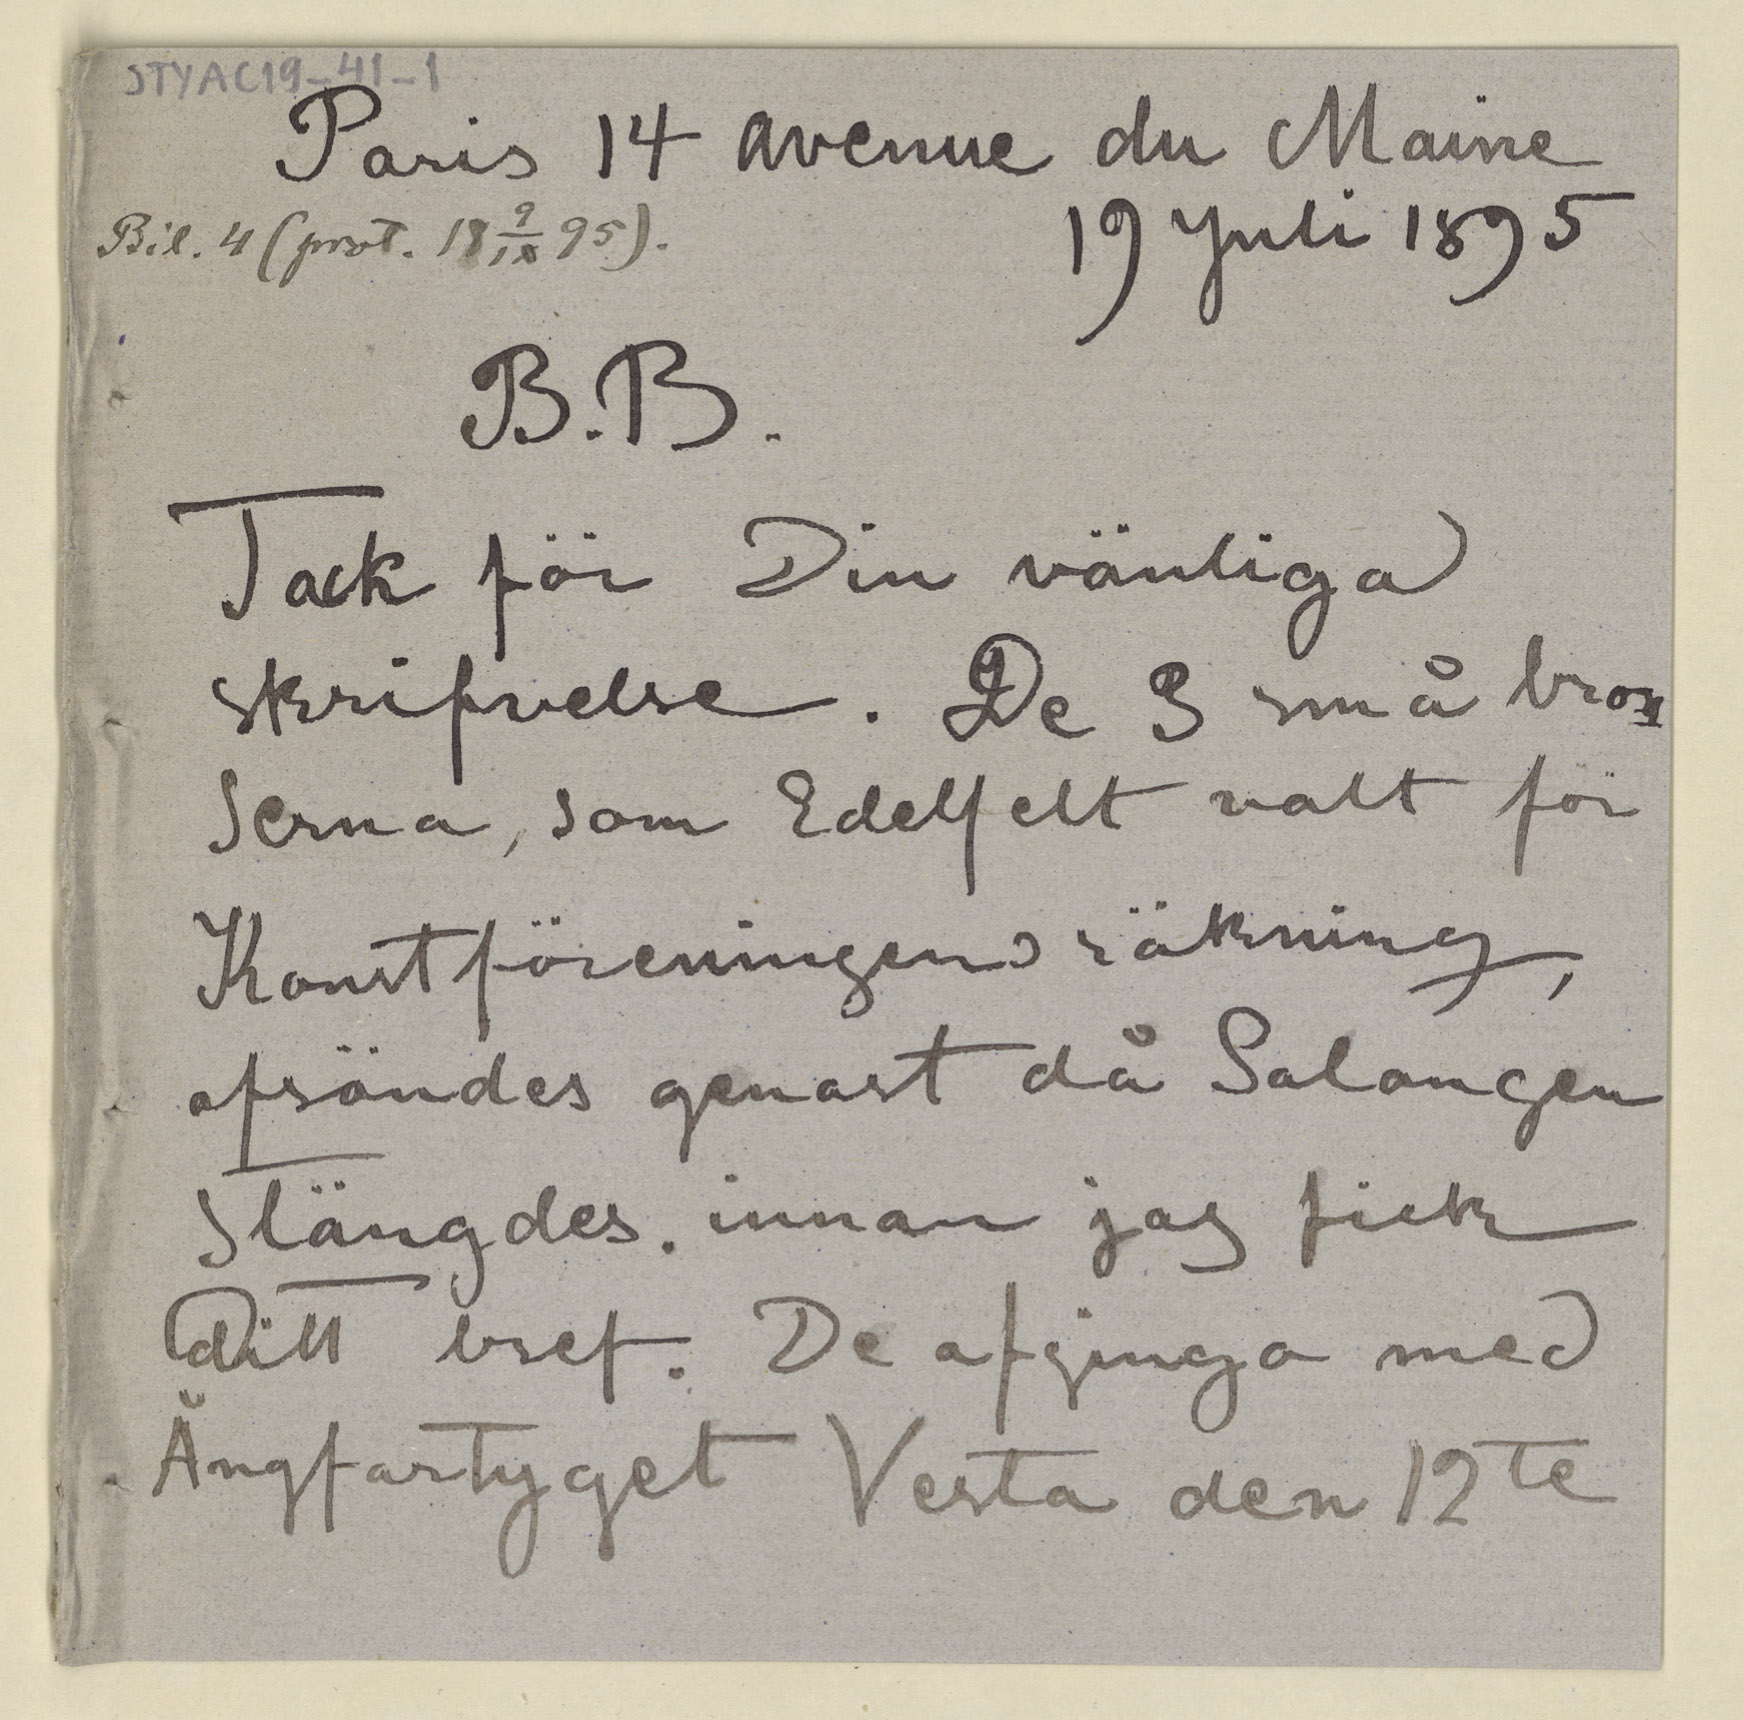 STYAC19-41-1
Paris 14 avenue du Maine
Bil. 4 (prot. 18 9/IX 95).
19 Juli 1895
B.B.
Tack för Din vänliga
skrifvelse. De 3 små bron
serna, som Edelfelt valt för
Konstföreningens räkning,
afsändes genast då Salongen
stängdes. innan jag fick
ditt bref. De afgingo med
Ångfartyget Vesta den 12te